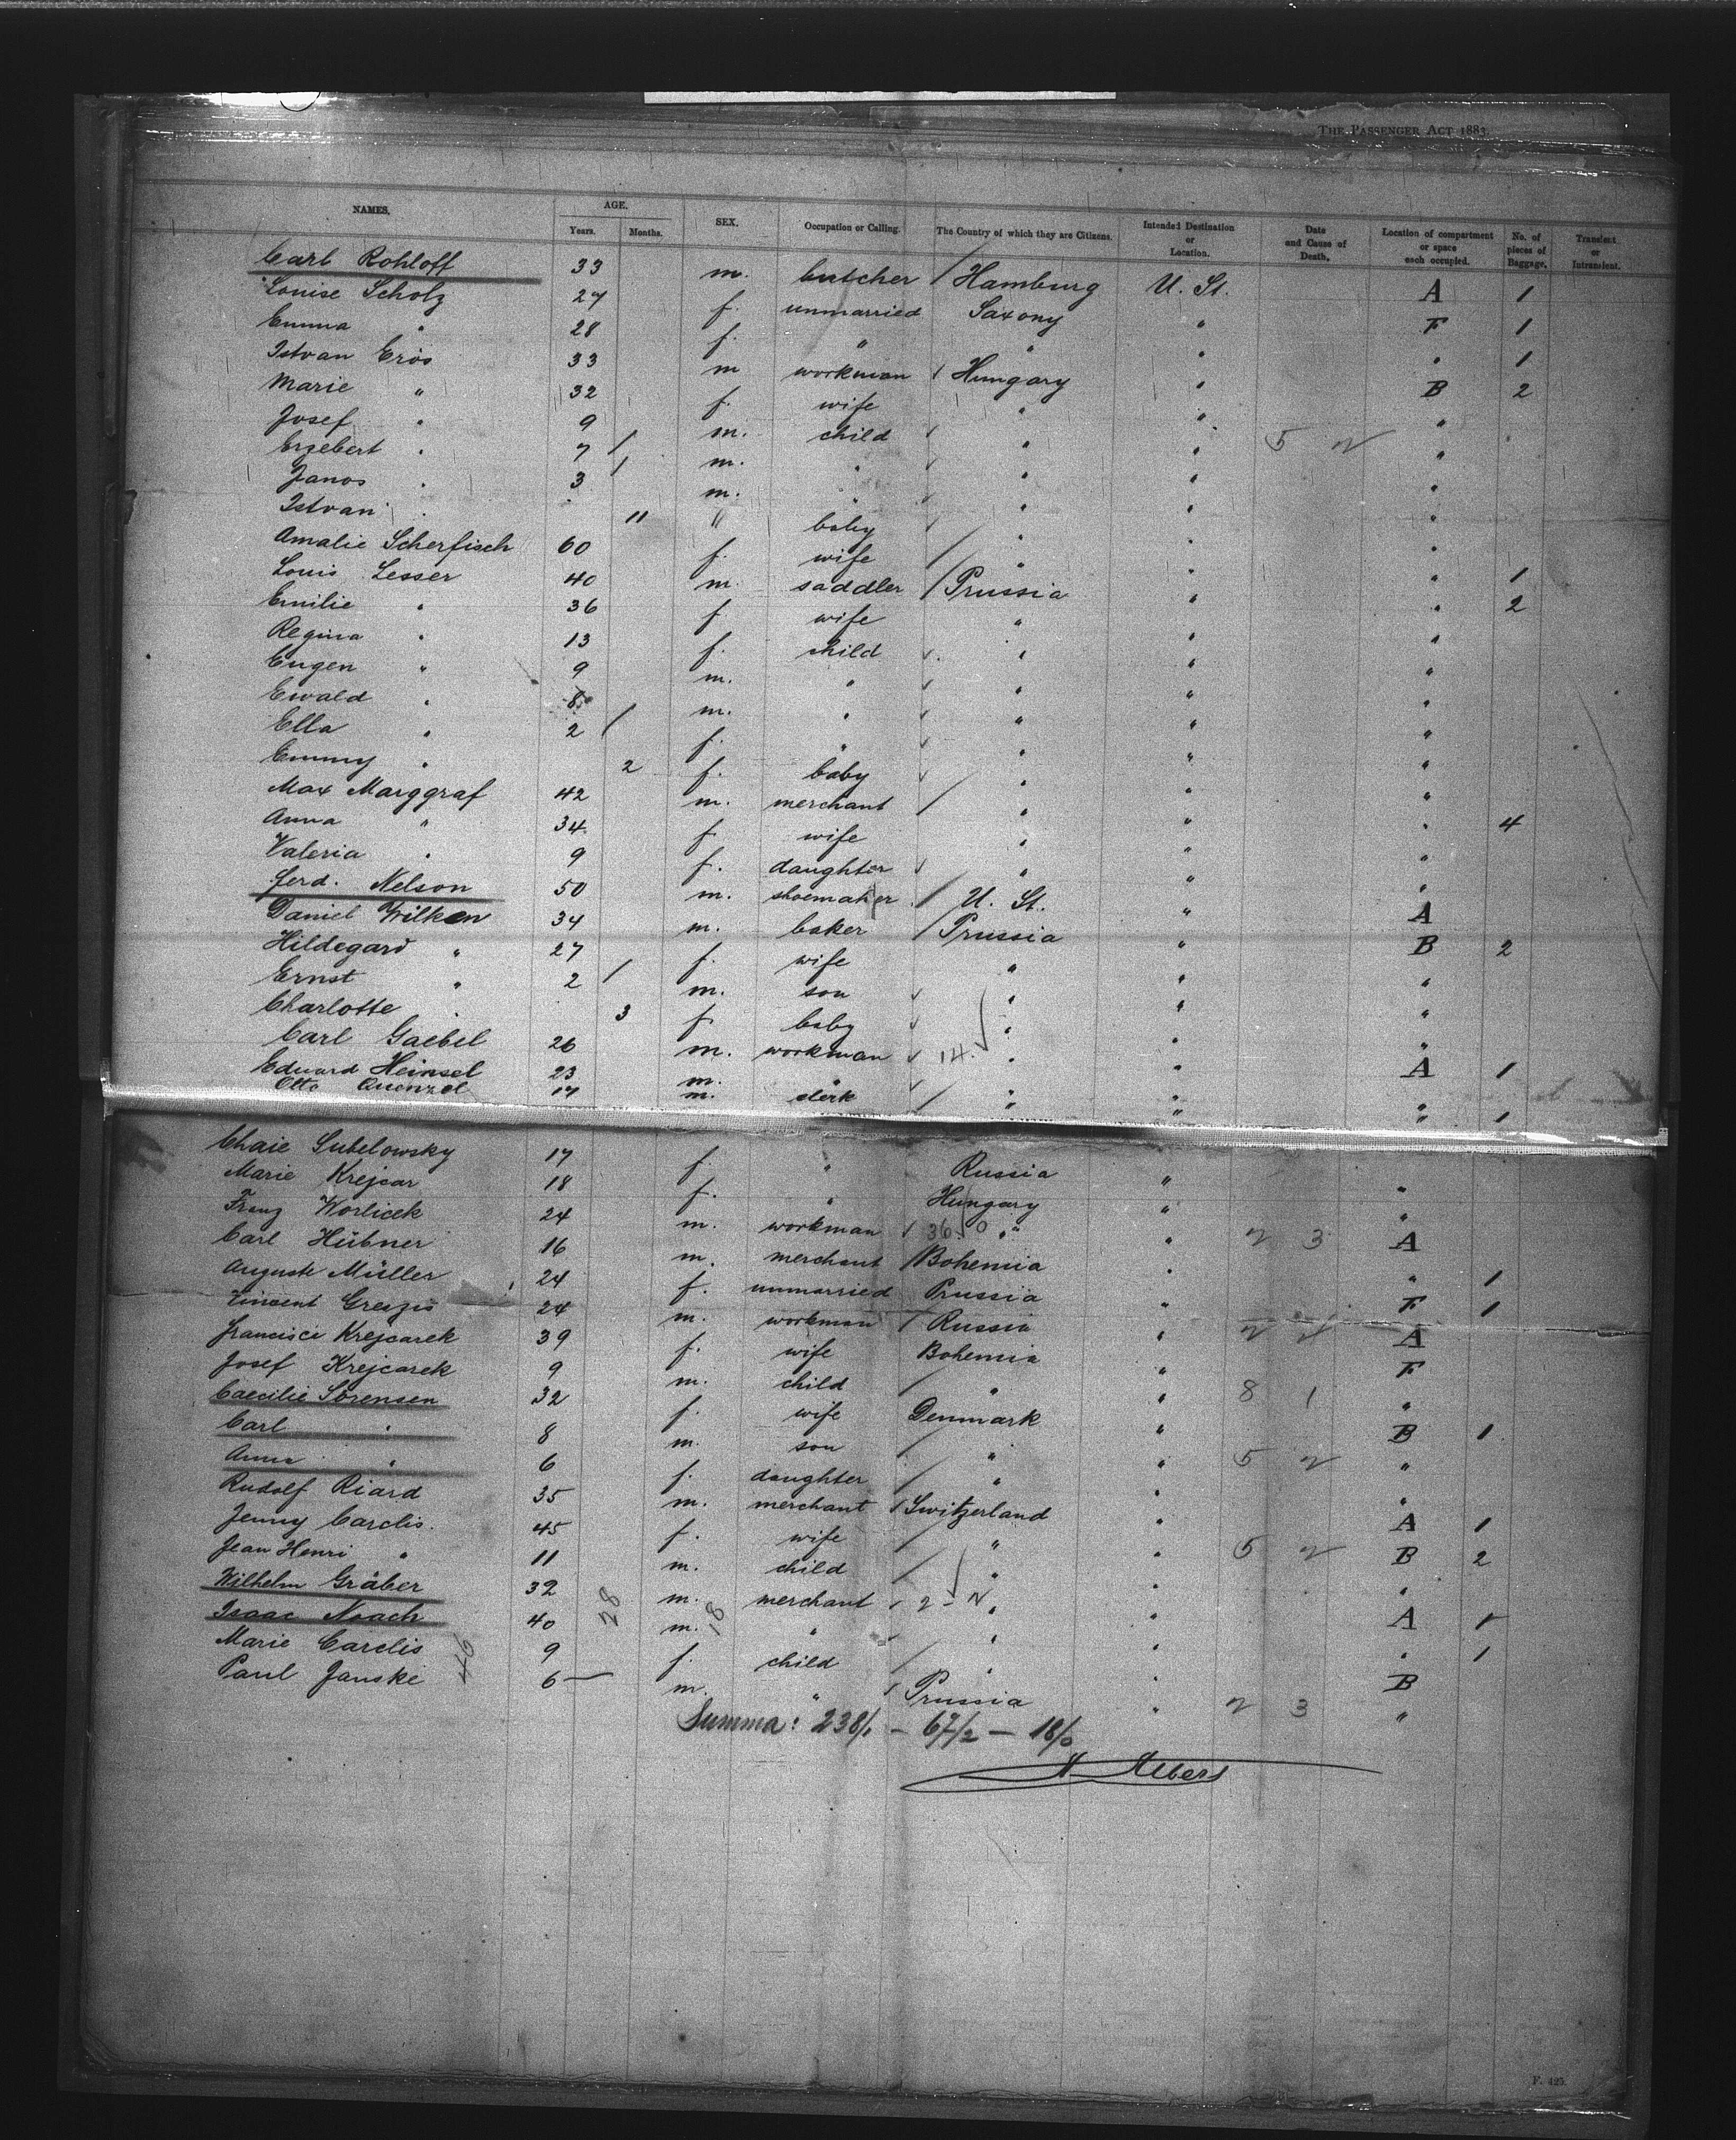 THE PASSENGER ACT 1882.
NAMES. AGE. Years. Months. SEX. Occupation or Calling. The Country of which they are Citizens. Intended Destination or Location. Date and Cause of Death. Location of compartment or space each occupied. No. of pieces of Baggage. Transient or Intransient.
Carl Rohloff 33 m. butcher / Hamburg U. St. A 1
Louise Scholz 27 f. unmarried Saxony " F 1
Emma " 28 f. " " " " 1
Istvan Erös 33 m workman / Hungary " B 2
Marie " 32 f. wife " " "
Josef " 9 m. child " " 5 2 "
Erzebert " 7 / m. " " " "
Janos " 3 / m. " " " "
Istvan " 11 " baby " " "
Amalie Scherfisch 60 f. wife / " " " 1
Louis Lesser 40 m. saddler / Prussia " " 2
Emilie " 36 f wife " " "
Regina " 13 f. child " " "
Eugen " 9 m. " " " "
Ewald " 8 m. " " " "
Ella " 2 / f. " " " "
Emmy " 2 f. baby " " "
Max Marggraf 42 m. merchant / " " " 4
Anna " 34 f wife " " "
Valeria " 9 f. daughter " " "
Ferd. Nelson 50 m. shoemaker / U. St. " A
Daniel Wilken 34 m. baker / Prussia " B 2
Hildegard " 27 f. wife " " "
Ernst " 2 / m. son " " "
Charlotte " 3 f baby " " "
Carl Gaebel 26 m. workman 14. " " A 1
Eduard Heinsel 23 m. " " " "
Otto Quenzel 17 m. clerk / " " " 1
Chaie Subelowsky 17 f. " Russia " "
Marie Krejcar 18 f. " Hungary " "
Franz Worlicek 24 m. workman / 36 0 " " 2 3 A
Carl Hübner 16 m. merchant / Bohemia " " 1
Auguste Müller 24 f. unmarried Prussia " F 1
Vincent 24 m. workman / Russia " 2 A
Francisci Krejcarek 39 f. wife Bohemia " F
Josef Krejcarek 9 m. child / " " 8 1 "
Caecilie Sörensen 32 f. wife Denmark " B 1
Carl " 8 m. son / " " 5 2 "
Anna " 6 f. daughter / " " "
Rudolf Riard 35 m. merchant / Switzerland " A 1
Jenny Carclis. 45 f. wife / " " 5 2 B 2
Jean Henri " 11 m. child / " " "
Wilhelm Gräber 32 28 m. merchant 2 - 2 " " A 1
Isaac Noach 40 m. 18 " " " " 1
Marie Carclis 46 9 f. child / " " B
Paul Janske 6 — m. " / Prussia " 2 3 "
Summa: 238/1 – 67/2 – 18/0
Albers
F. 425.